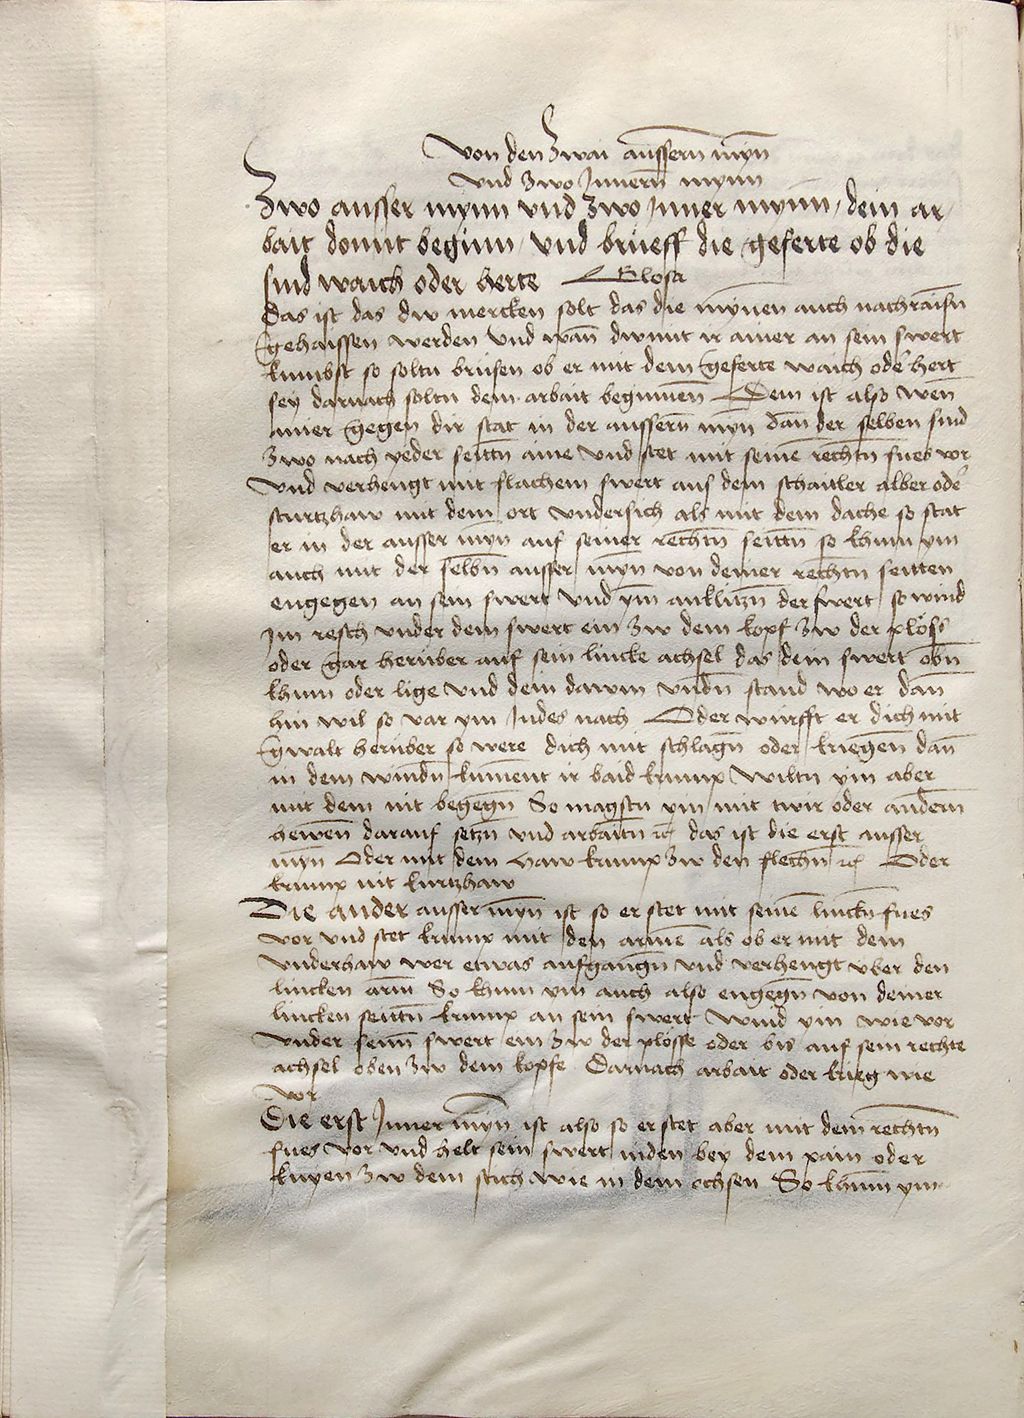 Von den Zwai aussern myn̄
und Zwo Jnnern̄ mynn
Zwo ausser mynn vnd Zwo jnner mynn / dein ar/
bait domit beginn / vnd brueff die geferte ob die
sind waich oder herte Glosa
Das ist das dw mercken solt das die mynnen auch nachraisn̄
gehaissen werden Vnd wan̄ dw mit ir ainer an sein swert
kumbst so soltu brüfen ob er mit dem geferte waich oder hert
sey darnach soltu dein arbait beginnen̄ Dem ist also wen̄
ainer gegen dir stat in der aussern̄ myn̄ dan̄ der selben sind
Zwo nach yeder seittn̄ aine Vnd stet mit seinē rechtn̄ fues vor
Vnd verhengt mit flachem swert aus dem schaitler alber ode͛
sturtzhaw mit dem ort vndersich als mit dem dache so stat
er in der ausser myn̄ auf seiner rechtn̄ seittn̄ so khum ym
auch mit der selbn̄ ausser myn̄ von deiner rechtn̄ seitten
engegen an sein swert Vnd ym̄ anklitzn̄ der swert so wind
Jm resch vnder dem swert ein Zw dem kopf Zw der plöss
oder gar herüber auf sein lincke achsel das dein swert obn̄
khum oder lige vnd dein dawm vndn̄ stand wo er dan̄
hin wil so var ym Jndes nach Oder würfft er dich mit
gwalt herüber so were dich mit schlagn̄ oder kriegen̄ dan̄
in dem windn̄ kument ir baid krump Wiltu ym aber
mit dem nit begegn̄ So magstu ym mit twir oder andern̄
hewen̄ darauf setzn̄ vnd arbaittn̄ ꝛc̄ das ist die erst ausser
myn̄ Oder mit dem haw krump Zw den flechn̄ ꝛc̄ Oder
krump nit kurtzhaw
Die ander ausser myn̄ ist so er stet mit seinē linckn̄ fues
vor vnd stet krump mit den armē als ob er mit dem
Vnderhaw wer etwas aufgangn̄ vnd verhengt vber den
lincken arm̄ So khum ym auch also engegn̄ von deiner
lincken seittn̄ krump an sein swert Wind ym wie vor
vnder seim̄ swert ein Zw der plösse oder bis auf sein rechte
achsel oben Zw dem kopfe Darnach arbait oder krieg wie
vor
Die erst Jnner myn̄ ist also so er stet aber mit dem rechtn̄
fues vor vnd helt sein swert niden bey dem pain oder
knyen Zw dem stich wie in dem ochsen So khum̄ ym